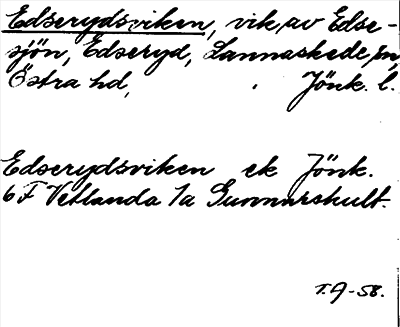 Edserydsviken, vik, av Edse-
sjön, Edseryd, Lannaskede sn,
Östra hd, Jönk. l.
Edserydsviken ek Jönk.
6 F Vetlanda 1a Gunnarshult.
T.A-58.